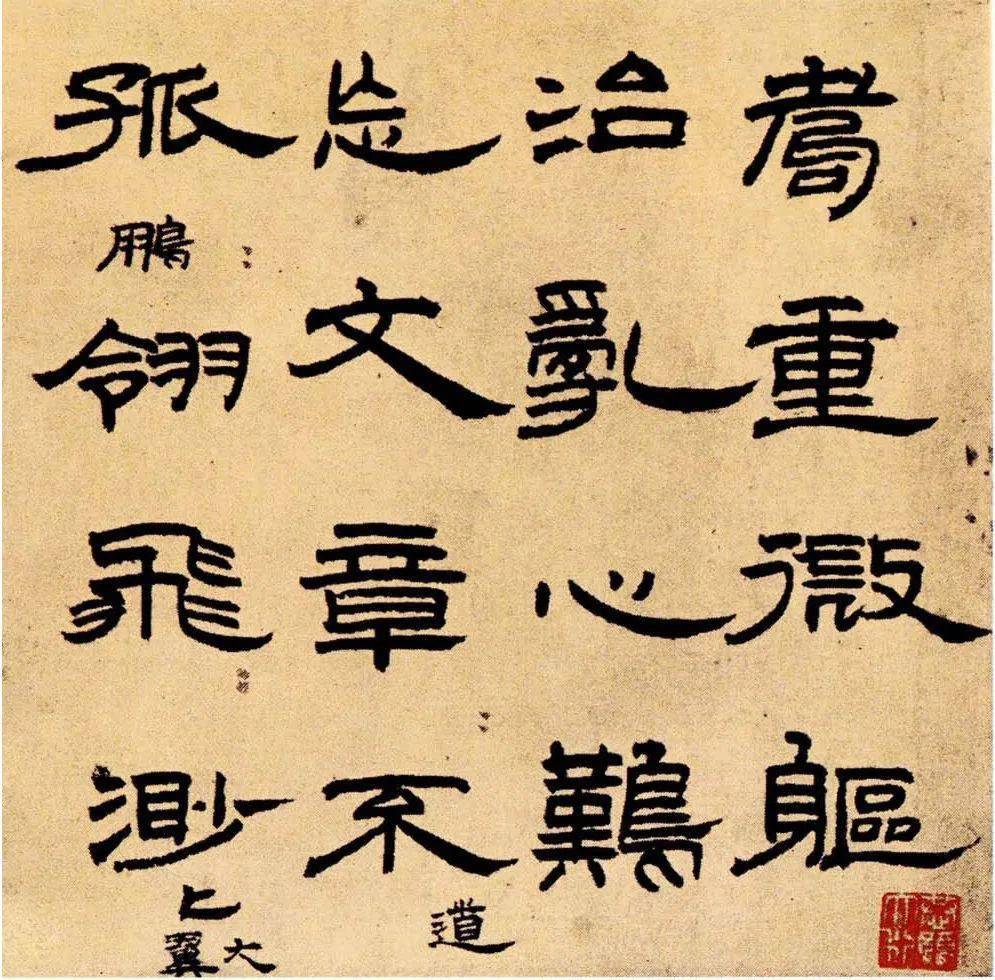 重微軀
治亂心難
忘文章不道
孤鵬翎飛測上大翼